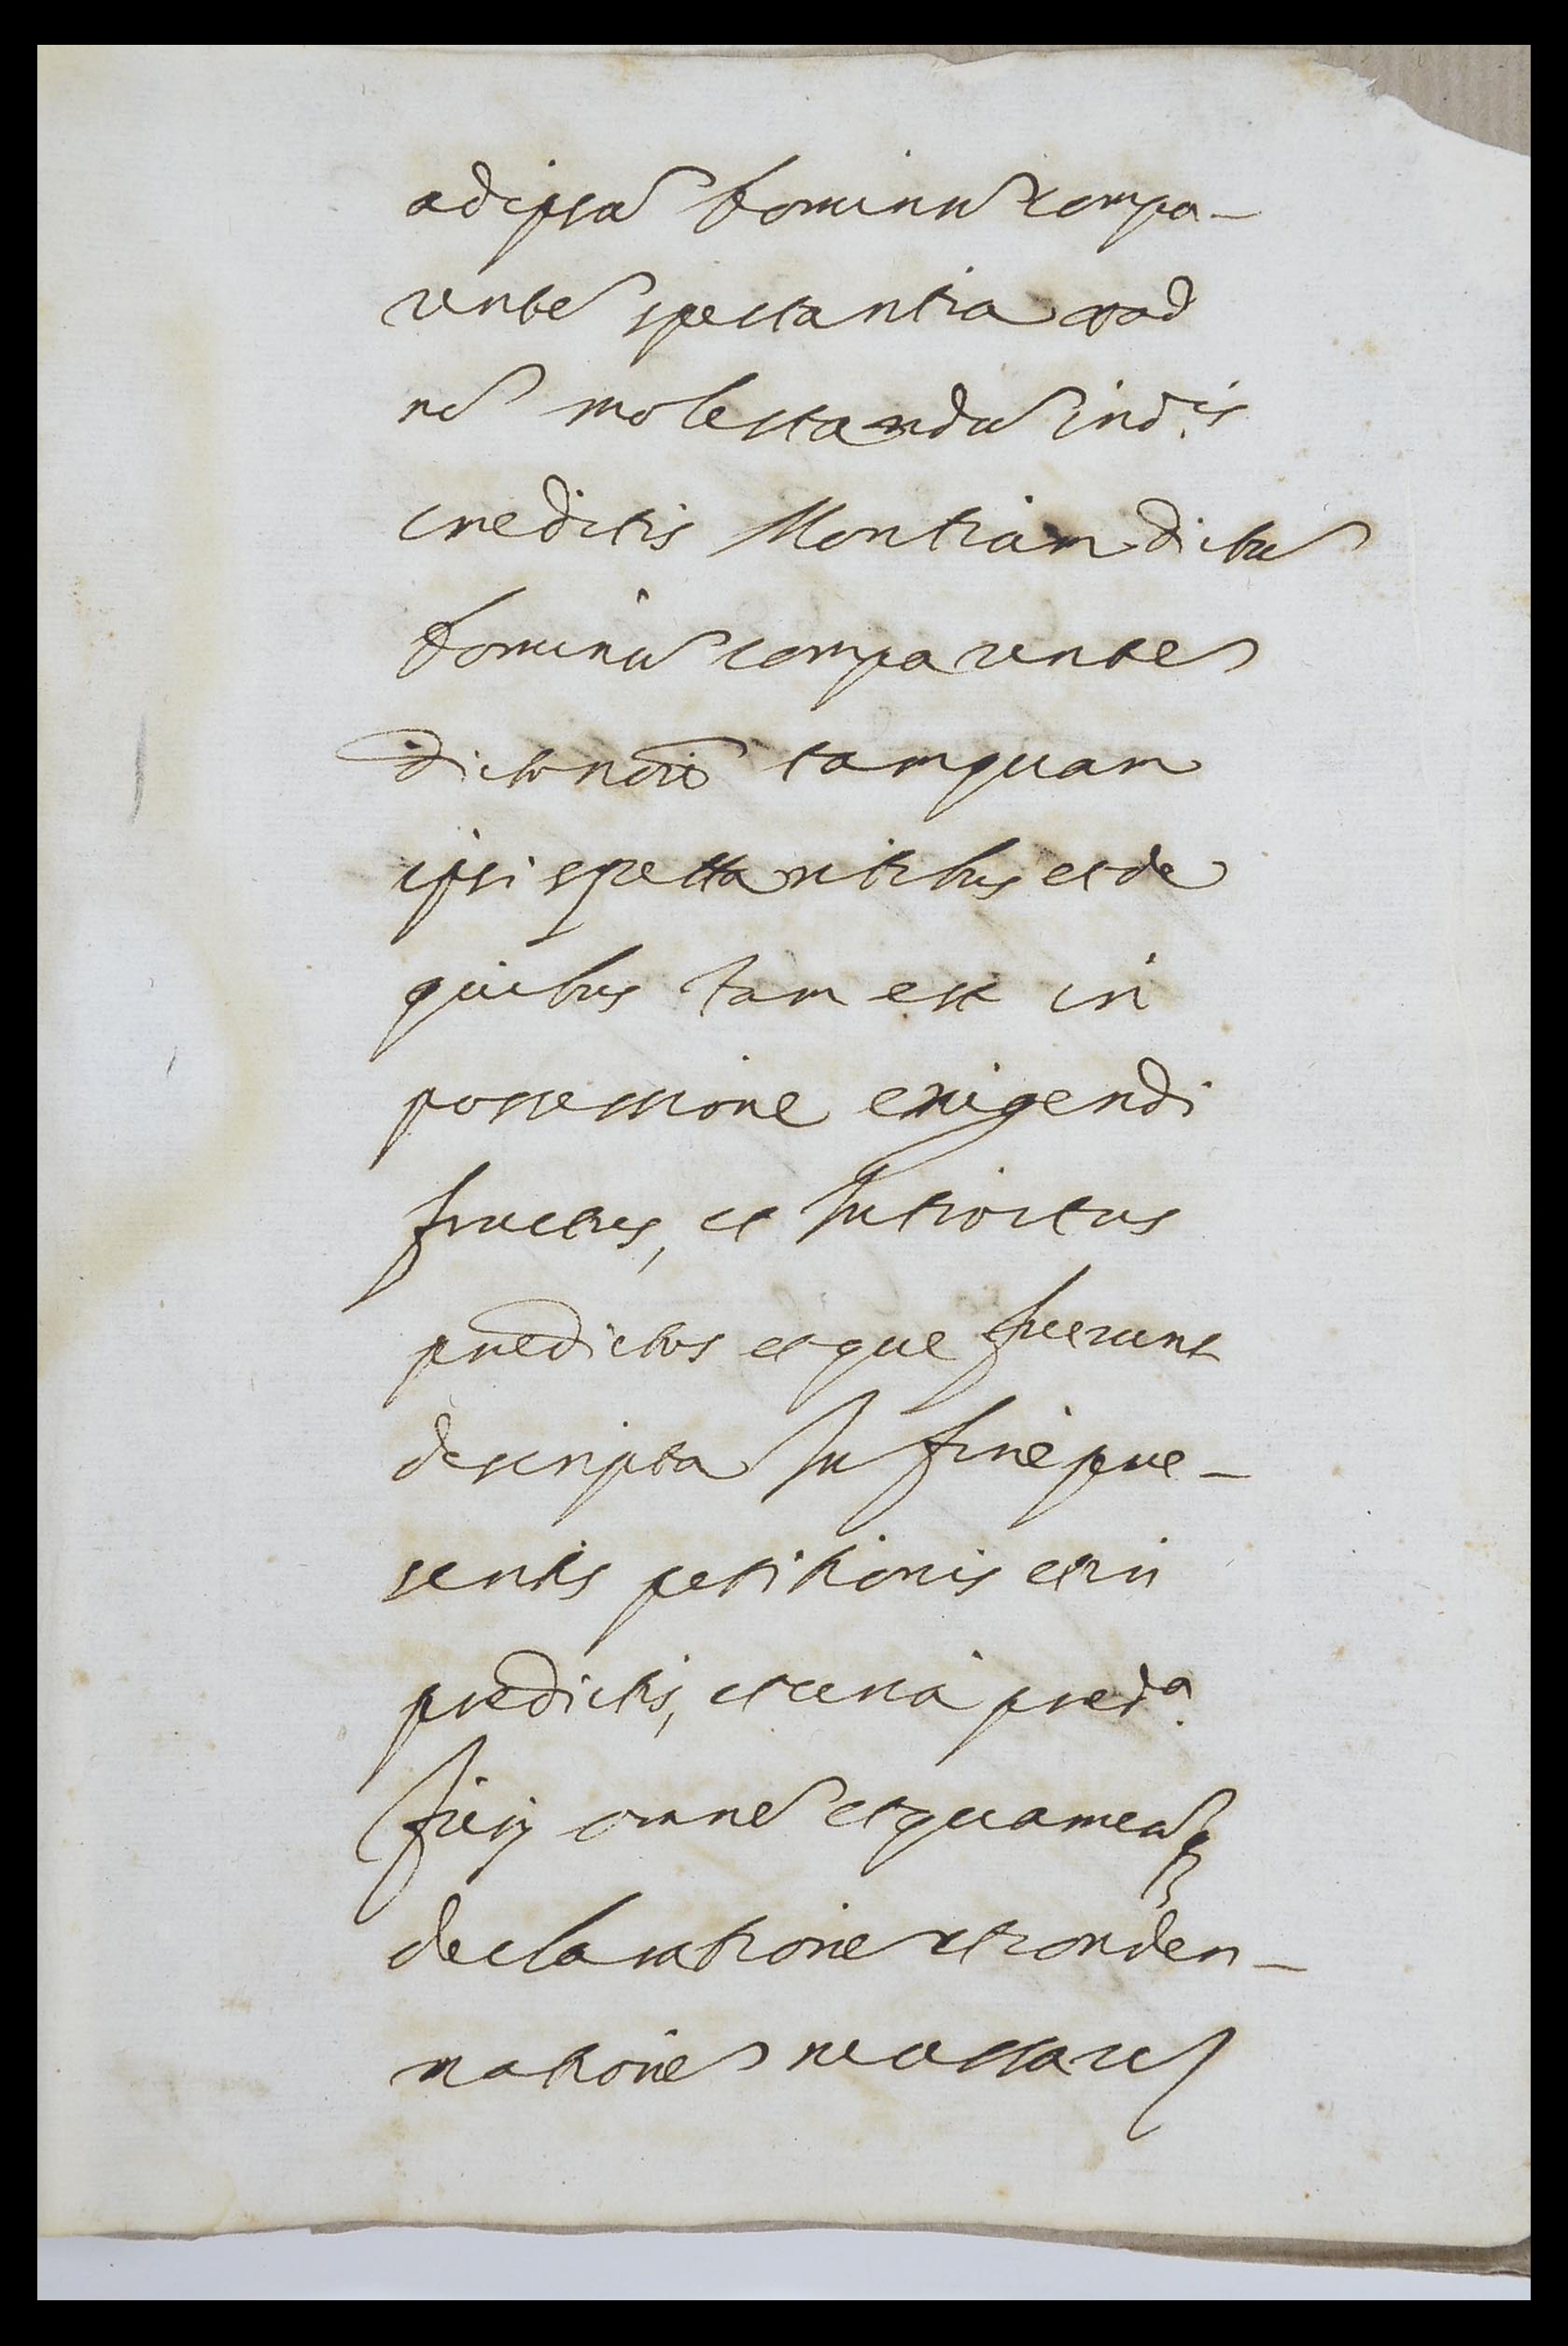 ad ipsũ dominũ compa-
rentẽ spectantia et ad
nõ molestandũ in d.is
creditis Montium dictũ
dominũ comparentẽ
dicto noiẽ tamquam
ipsi spectantibus et de
quibus Iam est in
possessione exigendi
fructus, et Introitus
predictos et que fuerunt
descripta In fine pre-
sentis petitionis et in
predictis, et circa pred.a
fieri omnẽ et quamcũq3
declarationẽ et conden-
nationẽ necessariã